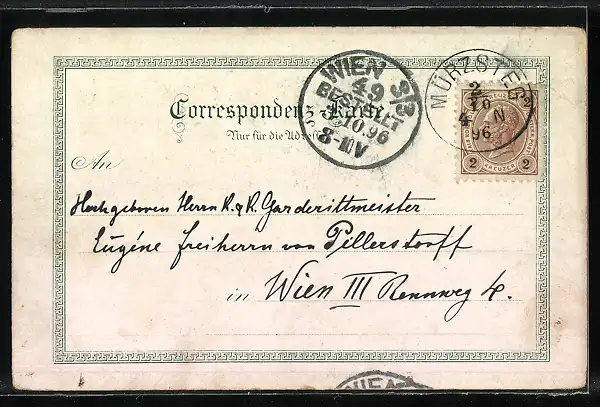 WIEN 3/3
49
BESTELLT
10.96
8-
MÜRZSTEG
2
10
4 N
96
2
2 KREUZER 2
Correspondenz-Karte
Nur für die Adresse
An
Hochgeboren Herrn K. & K. Garderittmeister
Eugéne Freiherrn von Pillerstorff
in Wien III Rennweg 4.
WIEN